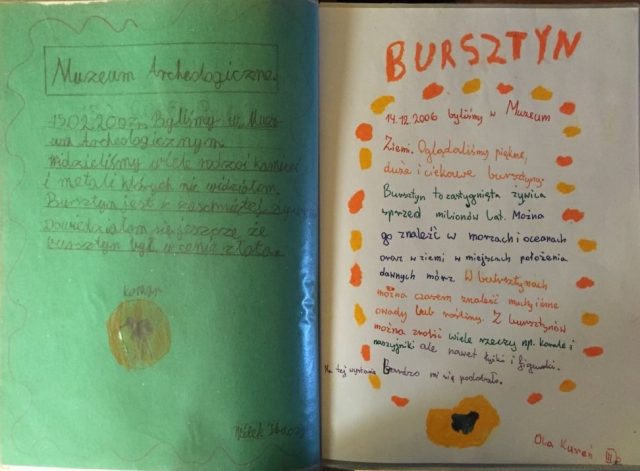 Muzeum Archeologiczne
19.02.2007r. Byliśmy w Muze-
um Archeologicznym.
Widzieliśmy wiele rodzai kamieni
i metali których nie widziałem.
Bursztyn jest z zaschniętej
Dowiedziałem się jeszcze że
bursztyn był w cenie złota.
komar
Witek
BURSZTYN
14.12.2006 byliśmy w Muzeum
Ziemi. Oglądaliśmy piękne,
duże i ciekawe bursztyny.
Bursztyn to zastygnięta żywica
sprzed milionów lat. Można
go znaleźć w morzach i oceanach
oraz w ziemi w miejscach położenia
dawnych mórz. W bursztynach
można czasem znaleść muchy i inne
owady lub rośliny. Z bursztynów
można zrobić wiele rzeczy np. korale i
naszyjniki ale nawet łyżki i figurki.
Na tej wystawie Bardzo mi się podobało.
Ola Kureń